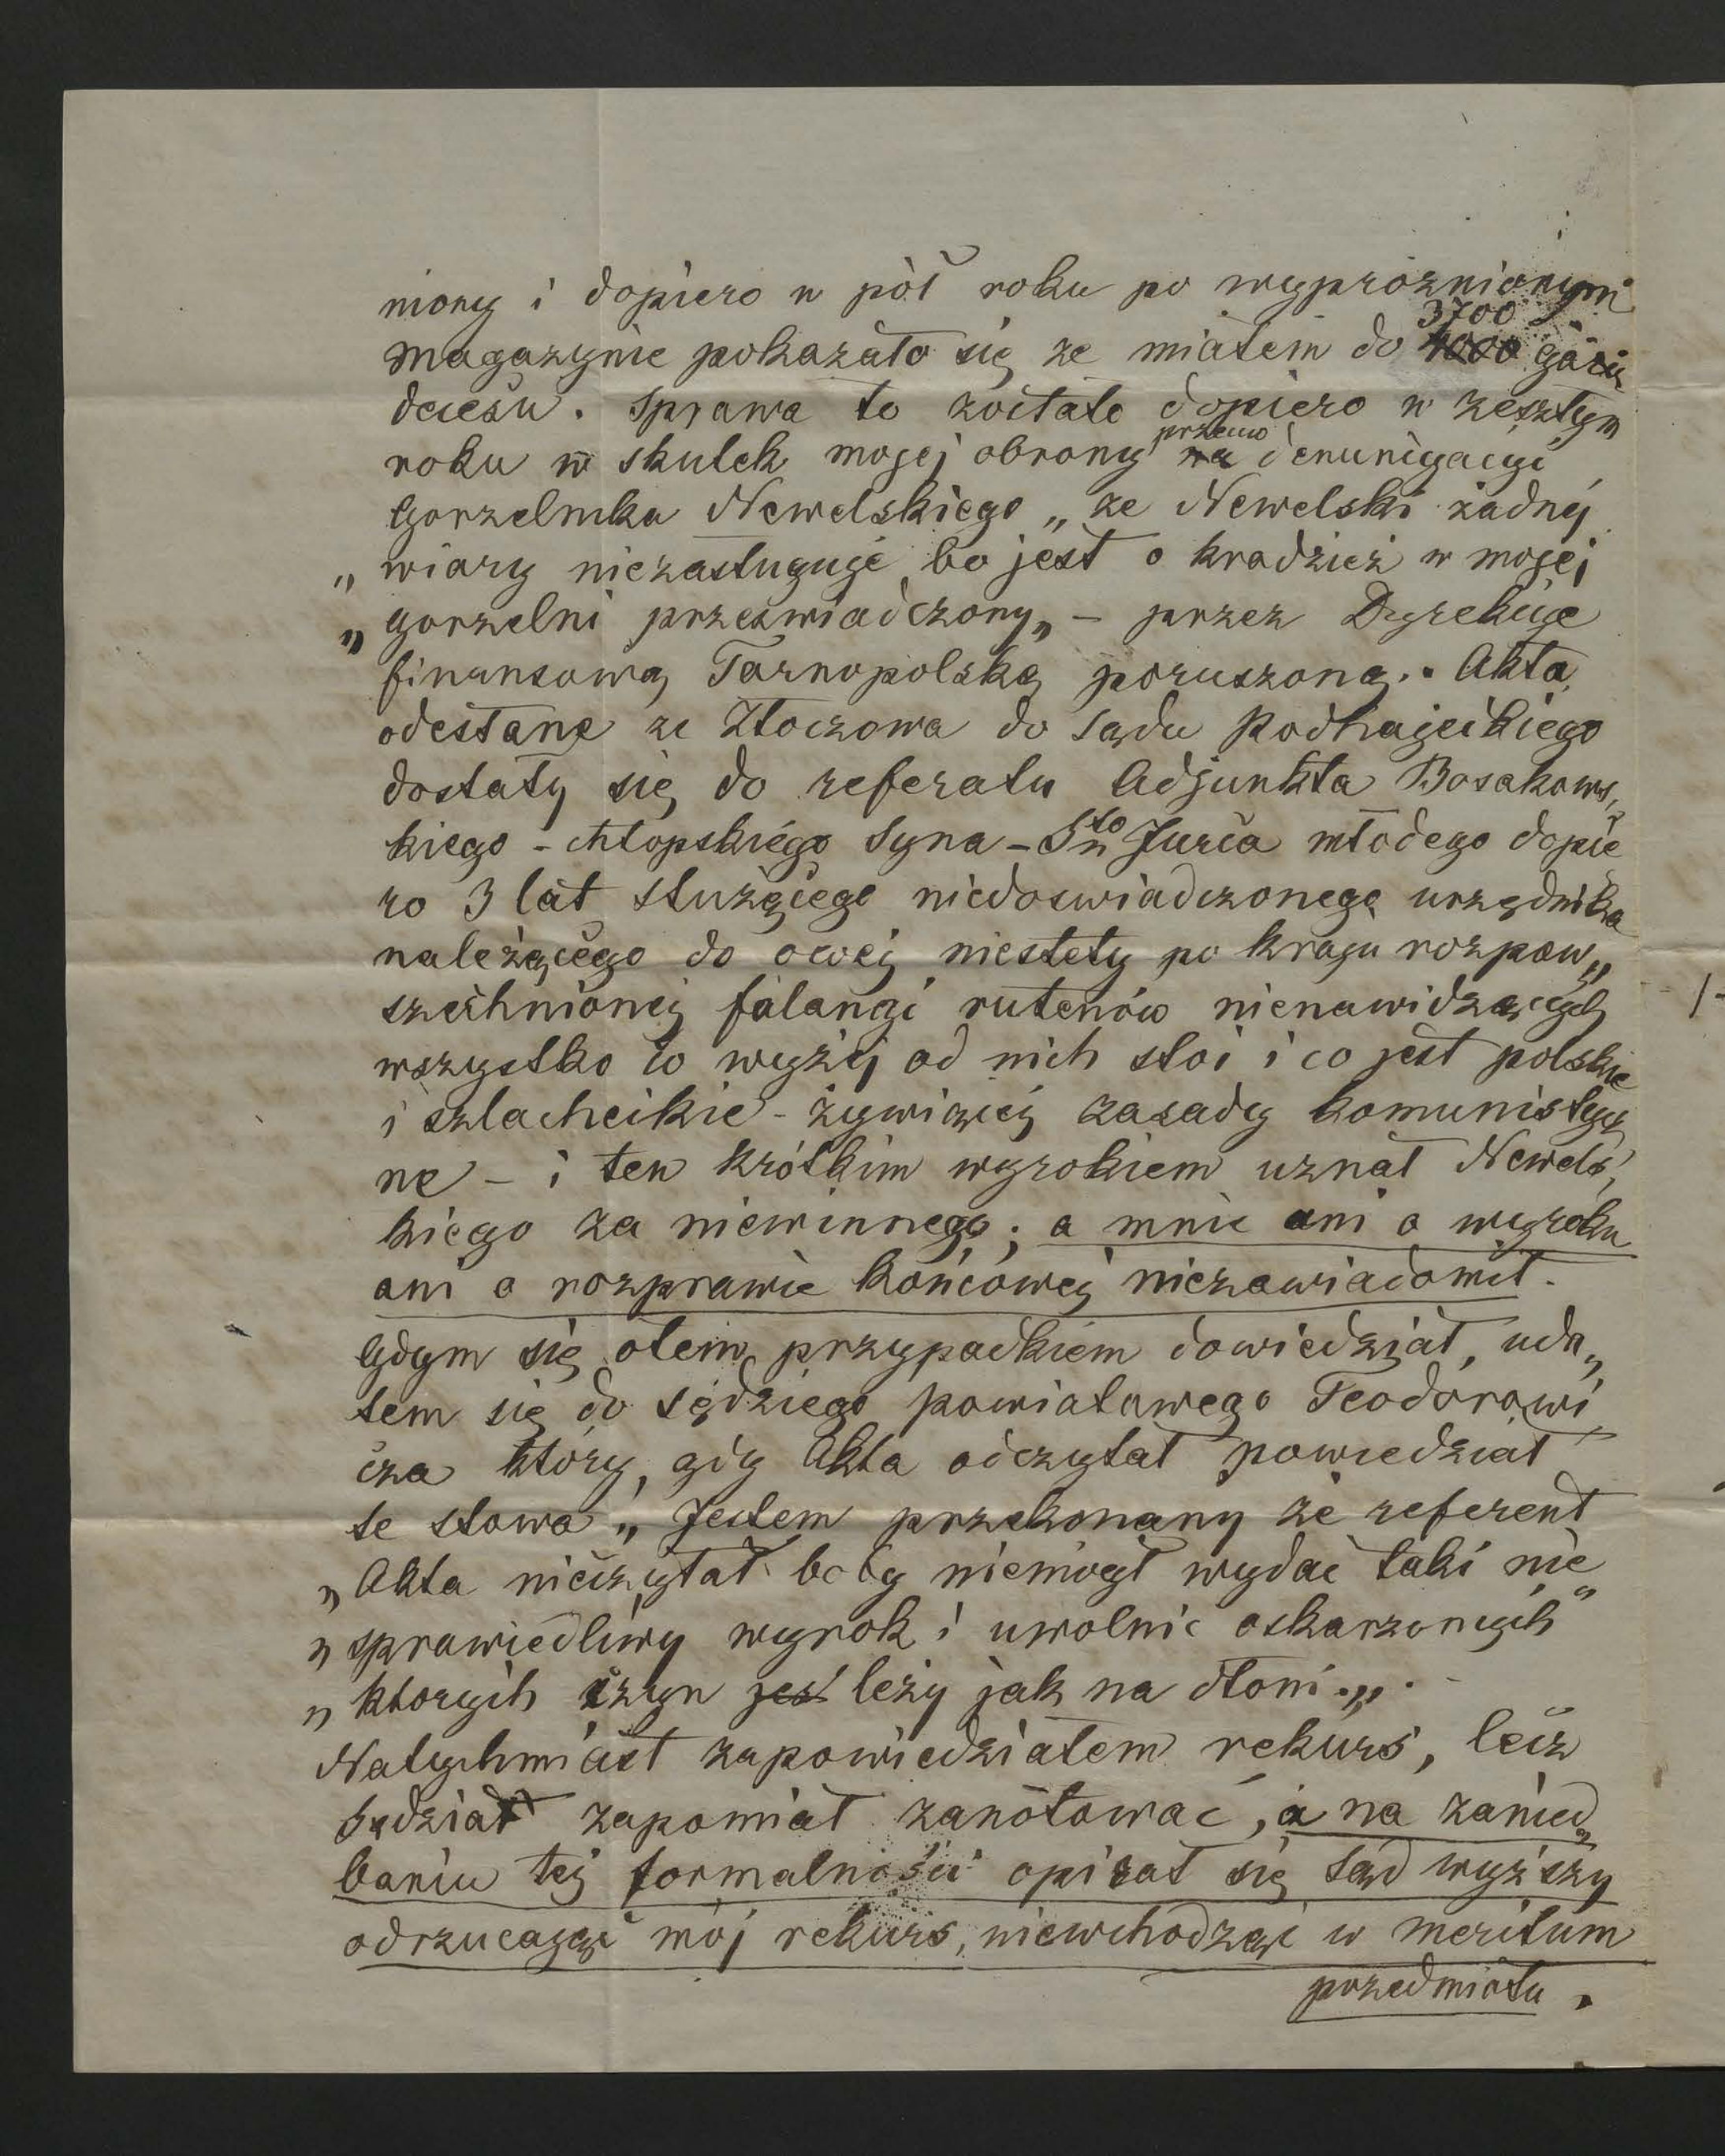 niony i dopiero w pół roku po wypróznionym
magazynie pokazało się ze miałem do 3700 4000 garcy
decesu. Sprawa to została dopiero w zeszłym
roku w skutek mojej obrony przeciw na denuncyacyi
Gorzelnika Newelskiego „ze Newelski żadnej
„wiary niezasługuje bo jest o kradzież w mojej
„gorzelni przeświadczony„ – przez Dyrekcije
finansową Tarnopolską poruszoną. Akta
odesłane ze Złoczowa do Sądu Podhajeckiego
dostały się do referatu Adjunkta Bosakows„
kiego – chłopskiego Syna – Sto Jurca młodego dopie
ro 3 lat służącego niedoswiadczonego urzędnika
należącego do owej niestety po kraju rozpow„
szechnionej falangi rutenów nienawidzących
wszystko co wyżej od nich stoi i co jest polskie
i szlacheckie – żywiącej zasady komunistycz
ne – i ten krótkim wyrokiem uznał Newels„
kiego za niewinnego; a mnie ani o wyroku
ani o rozprawie końcowej niezawiadomił.
Gdym się otem przypadkiem dowiedział, uda„
łem się do sędziego powiatowego Teodorowi
cza który, gdy Akta odczytał powiedział
te słowa „Jestem przekonany że referent
„Akta nieczytał boby niemógł wydać taki nie
„sprawiedliwy wyrok i uwolnic oskarzonych"
„ktorych czyn jest leży jak na dłoni.„.
Natychmiast zapowiedziałem rekurs, lecz
Sędzia zapomiał zanótować, a na zanied„
baniu tej formalności opierał się Sąd wyższy
odrzucając mój rekurs, niewchodząc w meritum
przedmiotu.